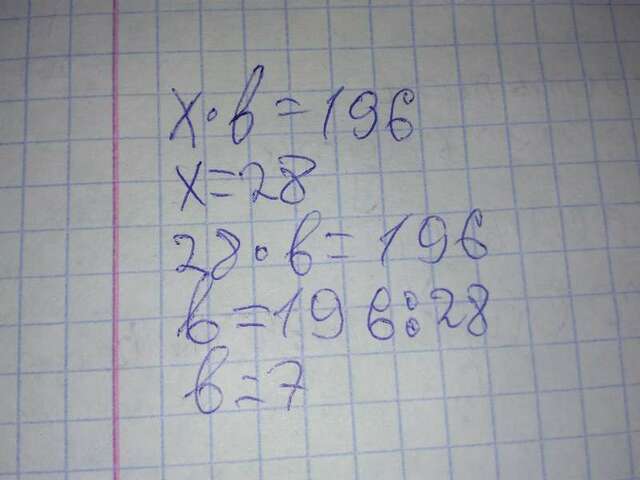 x·b=196
x=28
28·b=196
b=196:28
b=7